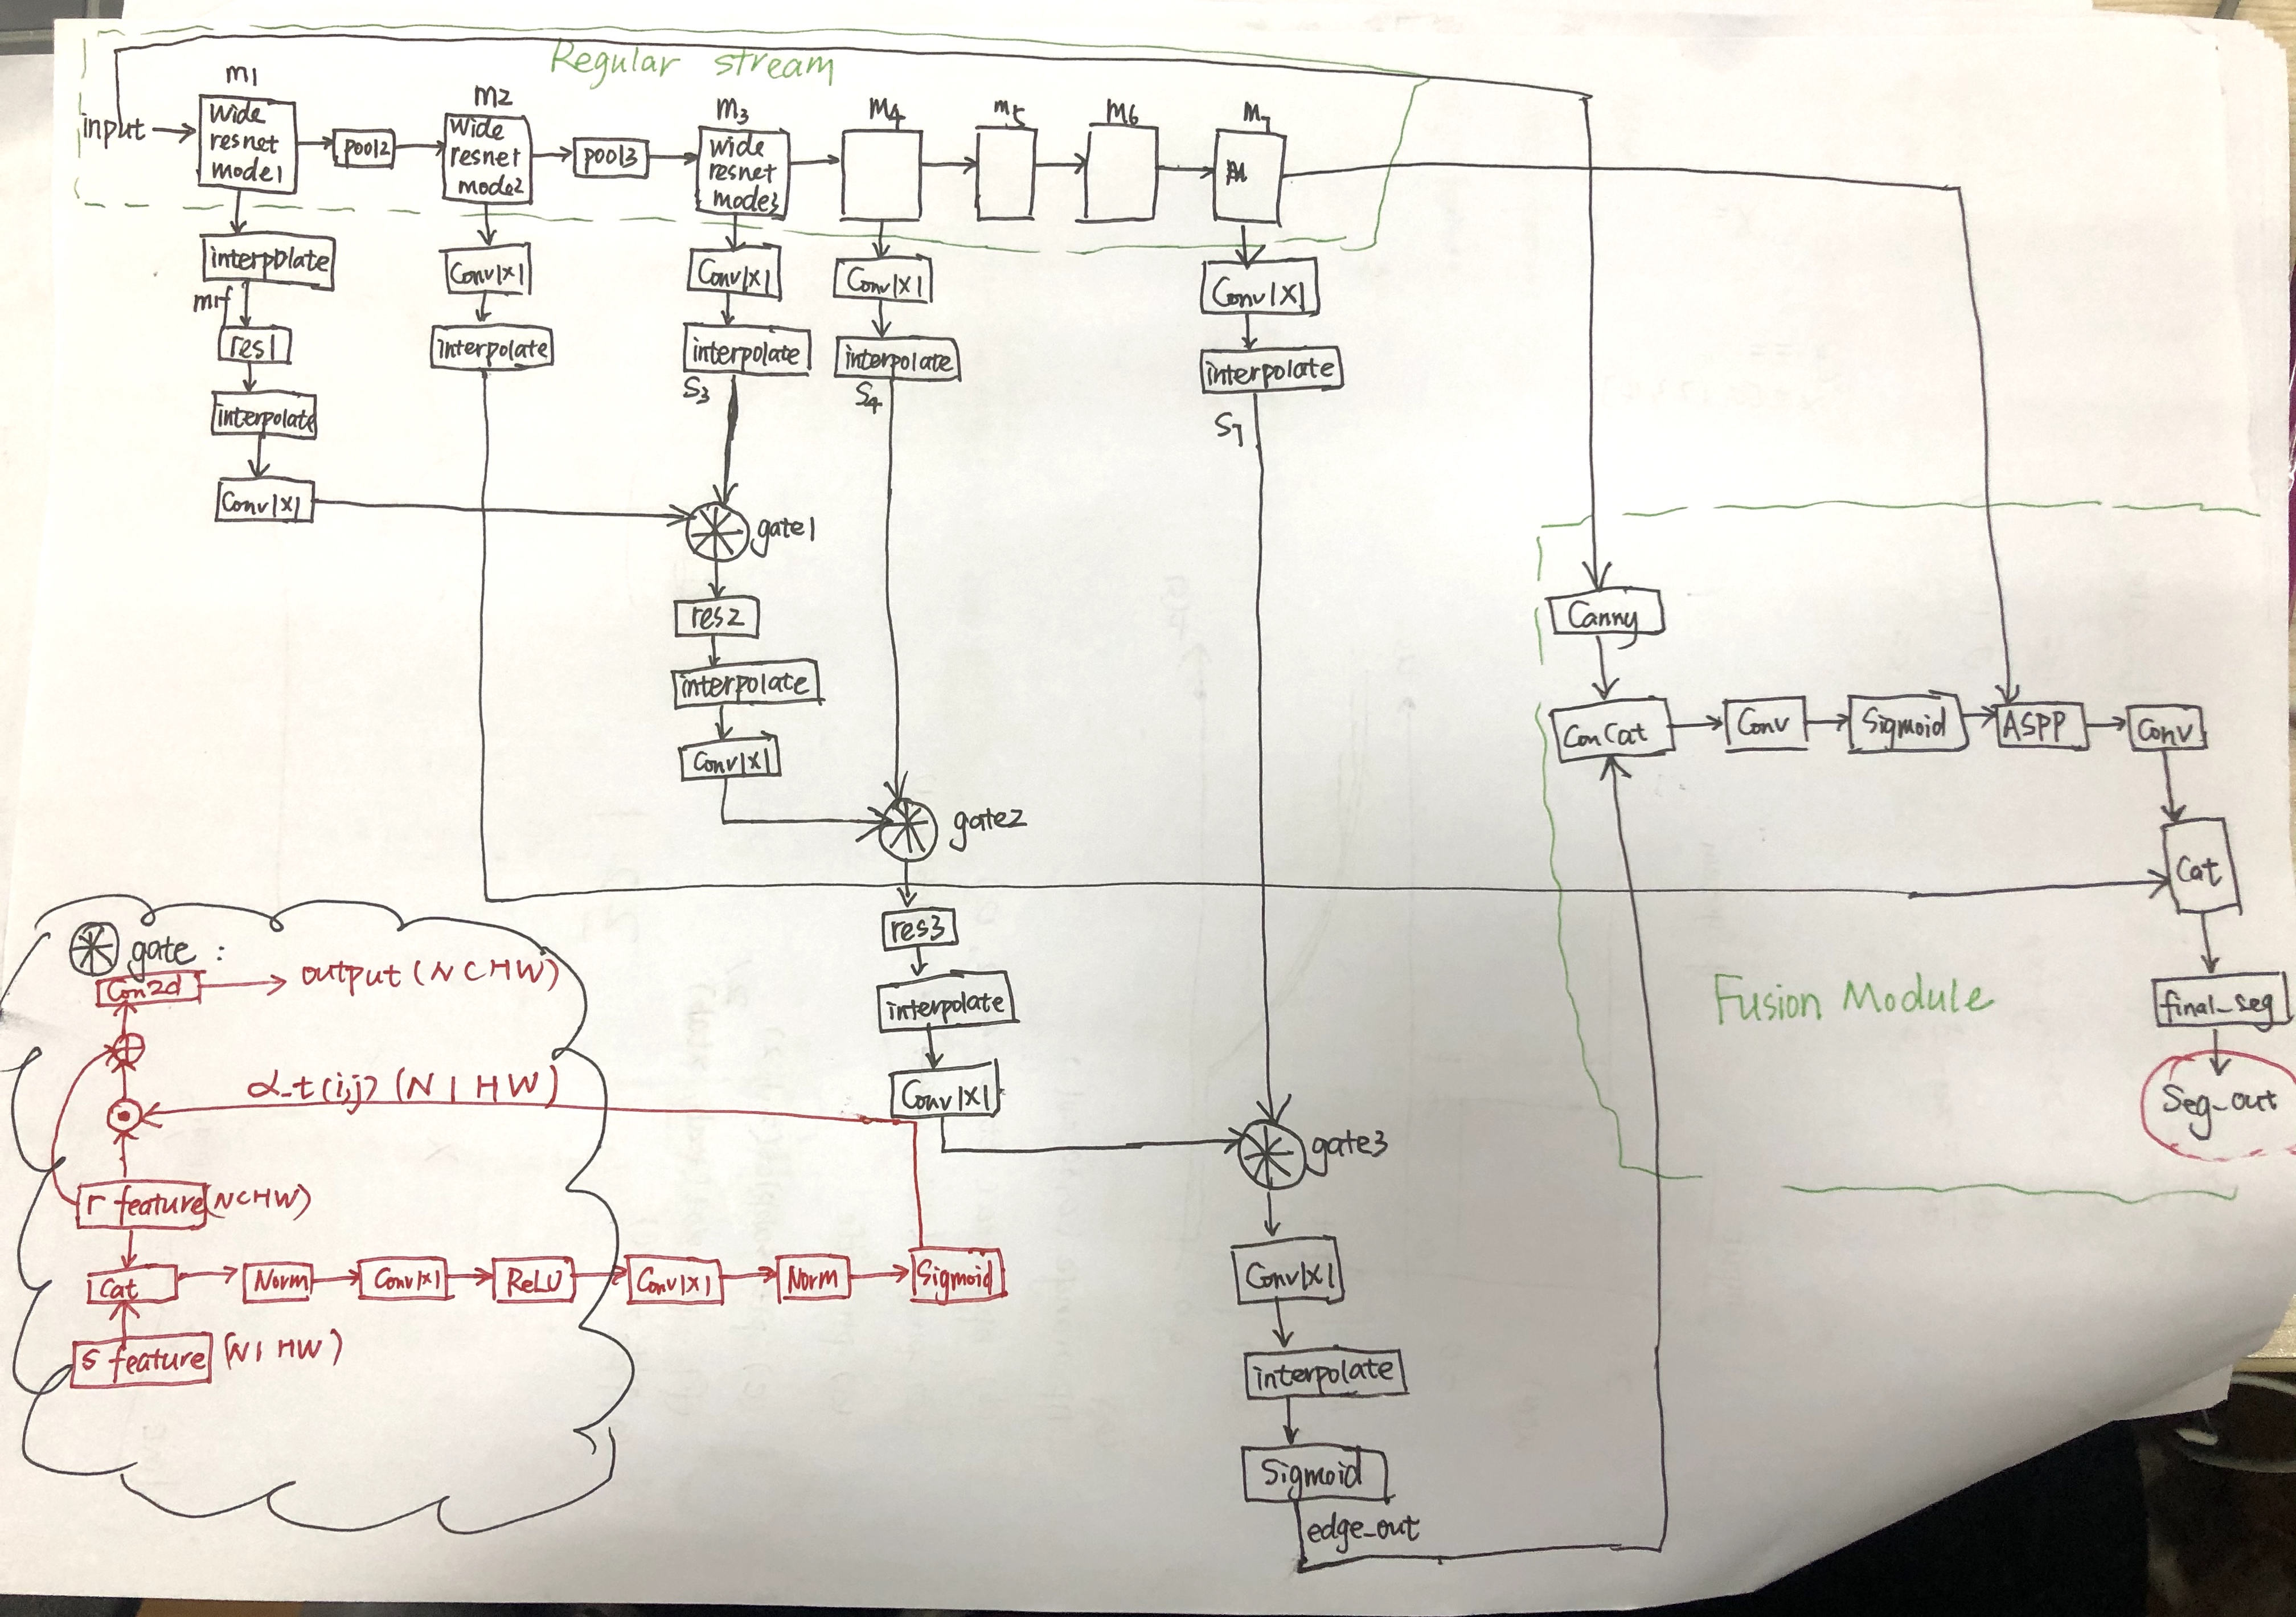 Regular stream
m1
m2
m3
m4
m5
m6
m7
input
wide
resnet
mode1
pool2
wide
resnet
mode2
pool3
wide
resnet
mode3
interpolate
m1f
res1
interpolate
Conv1x1
Conv1x1
interpolate
Conv1x1
interpolate
S3
Conv1x1
interpolate
S4
Conv1x1
interpolate
S7
gate1
res2
interpolate
Conv1x1
gate2
res3
interpolate
Conv1x1
gate3
Conv1x1
interpolate
Sigmoid
edge_out
Canny
ConCat
Conv
Sigmoid
ASPP
Conv
Cat
final_seg
Seg_out
Fusion Module
gate :
Con2d
output (NCHW)
α_t(i,j) (N1HW)
r feature (NCHW)
Cat
Norm
Conv1x1
ReLU
Conv1x1
Norm
Sigmoid
s feature (N1HW)